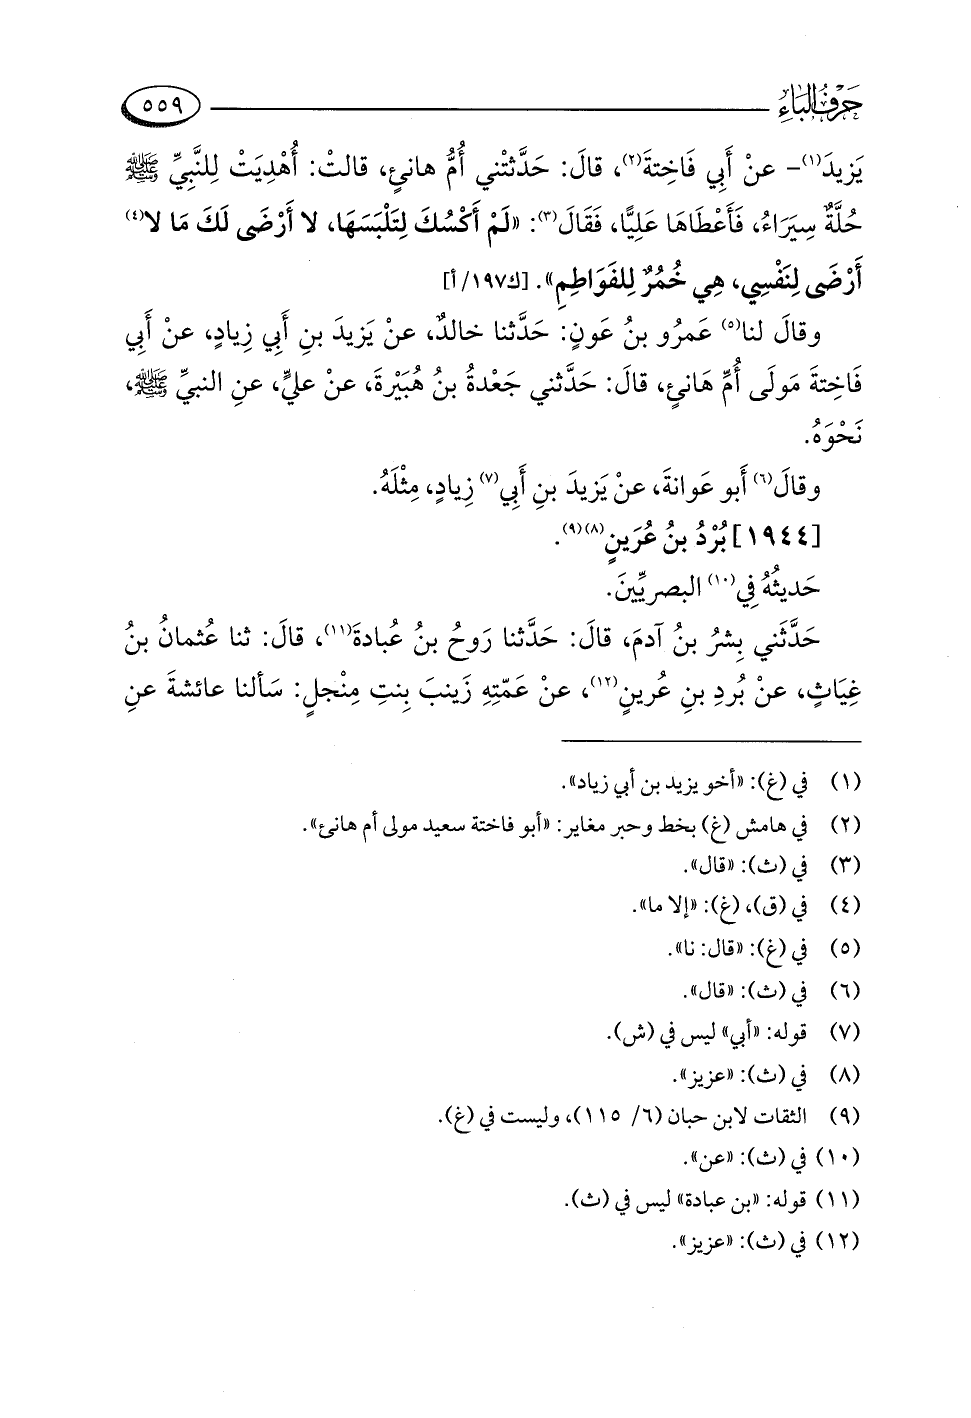 حَرْفُ البَاءِ ٥٥٩
يَزيدَ(١)- عنْ أَبِي فَاخِتةَ(٢)، قالَ: حَدَّثتْني أُمُّ هانئٍ، قالتْ: أُهْدِيَتْ لِلنَّبِيِّ ﷺ
حُلَّةٌ سِيَرَاءُ، فَأَعْطَاهَا عَلِيًّا، فَقَالَ(٣): «لَمْ أَكْسُكَ لِتَلْبَسَهَا، لا أَرْضَى لَكَ مَا لا(٤)
أَرْضَى لِنَفْسِي، هِي خُمُرٌ لِلفَوَاطِمِ». [ك١٩٧/أ]
وقالَ لنا(٥) عَمرُو بنُ عَونٍ: حَدَّثنا خالدٌ، عنْ يَزيدَ بنِ أَبي زِيادٍ، عنْ أَبي
فَاخِتةَ مَولَى أُمِّ هَانئٍ، قالَ: حَدَّثني جَعْدةُ بنُ هُبَيْرةَ، عنْ عليٍّ، عنِ النبيِّ ﷺ،
نَحْوَهُ.
وقالَ(٦) أَبو عَوانةَ، عنْ يَزيدَ بنِ أَبي(٧) زِيادٍ، مِثْلَهُ.
[١٩٤٤] بُرْدُ بنُ عُرَينٍ(٨)(٩).
حَديثُهُ فِي(١٠) البصريِّينَ.
حَدَّثَني بِشرُ بنُ آدمَ، قالَ: حَدَّثنا رَوحُ بنُ عُبادةَ(١١)، قالَ: ثنا عُثمانُ بنُ
غِيَاثٍ، عنْ بُردِ بنِ عُرينٍ(١٢)، عنْ عَمّتِهِ زَينبَ بنتِ مِنْجلٍ: سَألنا عائشةَ عنِ
(١) في (غ): «أخو يزيد بن أبي زياد».
(٢) في هامش (غ) بخط وحبر مغاير: «أبو فاختة سعيد مولى أم هانئ».
(٣) في (ث): «قال».
(٤) في (ق)، (غ): «إلا ما».
(٥) في (غ): «قال: نا».
(٦) في (ث): «قال».
(٧) قوله: «أبي» ليس في (ش).
(٨) في (ث): «عزيز».
(٩) الثقات لابن حبان (٦/ ١١٥)، وليست في (غ).
(١٠) في (ث): «عن».
(١١) قوله: «بن عبادة» ليس في (ث).
(١٢) في (ث): «عزيز».